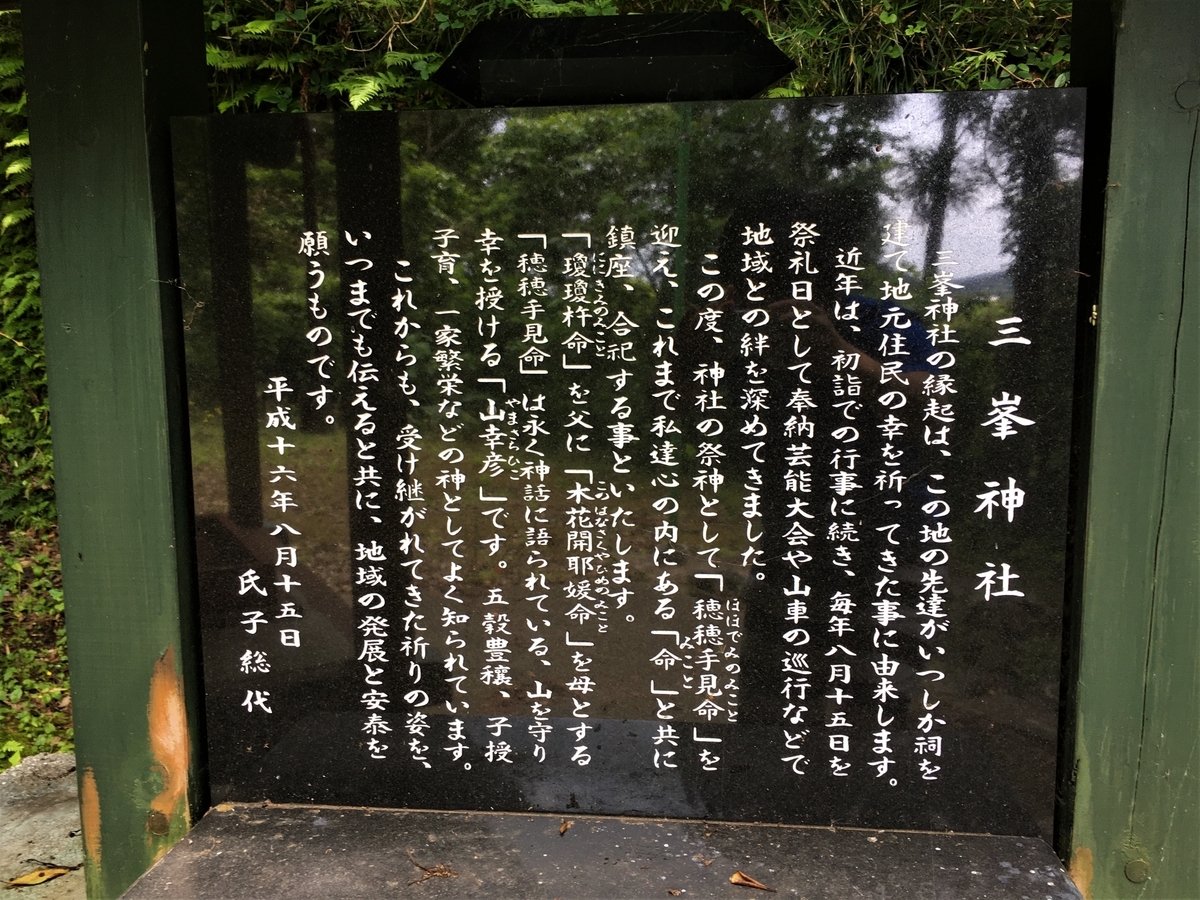 三峯神社
三峯神社の縁起は、この地の先達がいつしか祠を
建て地元住民の幸を祈ってきた事に由来します。
近年は、初詣での行事に続き、毎年八月十五日を
祭礼日として奉納芸能大会や山車の巡行などで
地域との絆を深めてきました。
この度、神社の祭神として「穂穂手見命」を
ほほでみのみこと
迎え、これまで私達心の内にある「命」と共に
みこと
鎮座、合祀する事といたします。
「瓊瓊杵命」を父に「木花開耶媛命」を母とする
ににぎのみこと
このはなさくやひめのみこと
「穂穂手見命」は永く神話に語られている、山を守り
幸を授ける「山幸彦」です。五穀豊穣、子授
やまさちひこ
子育、一家繁栄などの神としてよく知られています。
これからも、受け継がれてきた祈りの姿を、
いつまでも伝えると共に、地域の発展と安泰を
願うものです。
平成十六年八月十五日
氏子総代